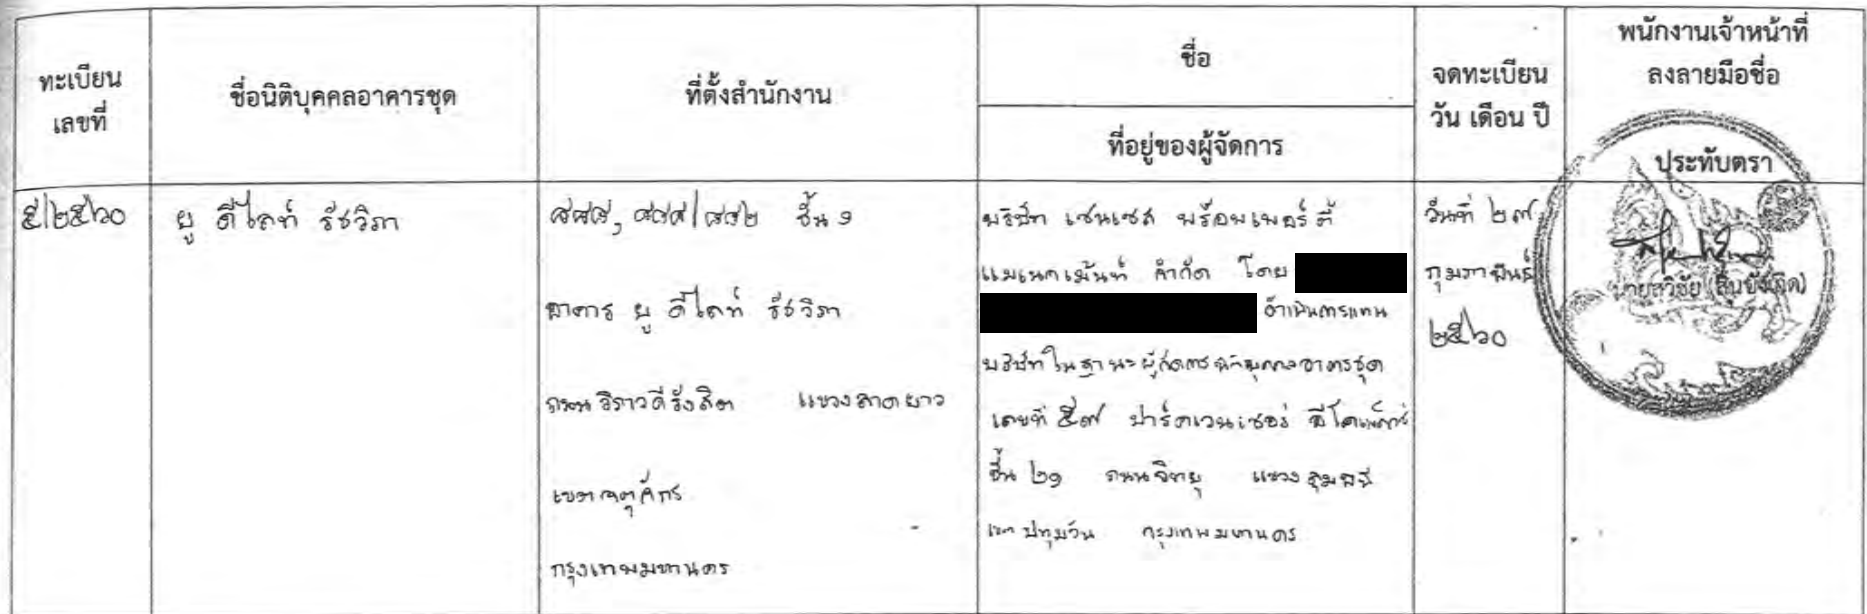 ทะเบียน
เลขที่
ชื่อนิติบุคคลอาคารชุด
ที่ตั้งสำนักงาน
ชื่อ
ที่อยู่ของผู้จัดการ
จดทะเบียน
วัน เดือน ปี
พนักงานเจ้าหน้าที่
ลงลายมือชื่อ
ประทับตรา
๕/๒๕๖๐
ยู ดีไลท์ รัชวิภา
ชั้น ๑
อาคาร ยู ดีไลท์ รัชวิภา
ถนนวิภาวดีรังสิต แขวงลาดยาว
เขตจตุจักร
กรุงเทพมหานคร
บริษัท เซนเซส พร็อพเพอร์ตี้
แมเนคเม้นท์ จำกัด โดย
ดำเนินการแทน
บริษัทในฐานะผู้จัดการนิติบุคคลอาคารชุด
เลขที่ ๕๗ ปาร์คเวนเชอร์ อีโคเพล็กซ์
ชั้น ๒๑ ถนนวิทยุ แขวงลุมพินี
เขตปทุมวัน กรุงเทพมหานคร
วันที่ ๒๗
กุมภาพันธ์
๒๕๖๐